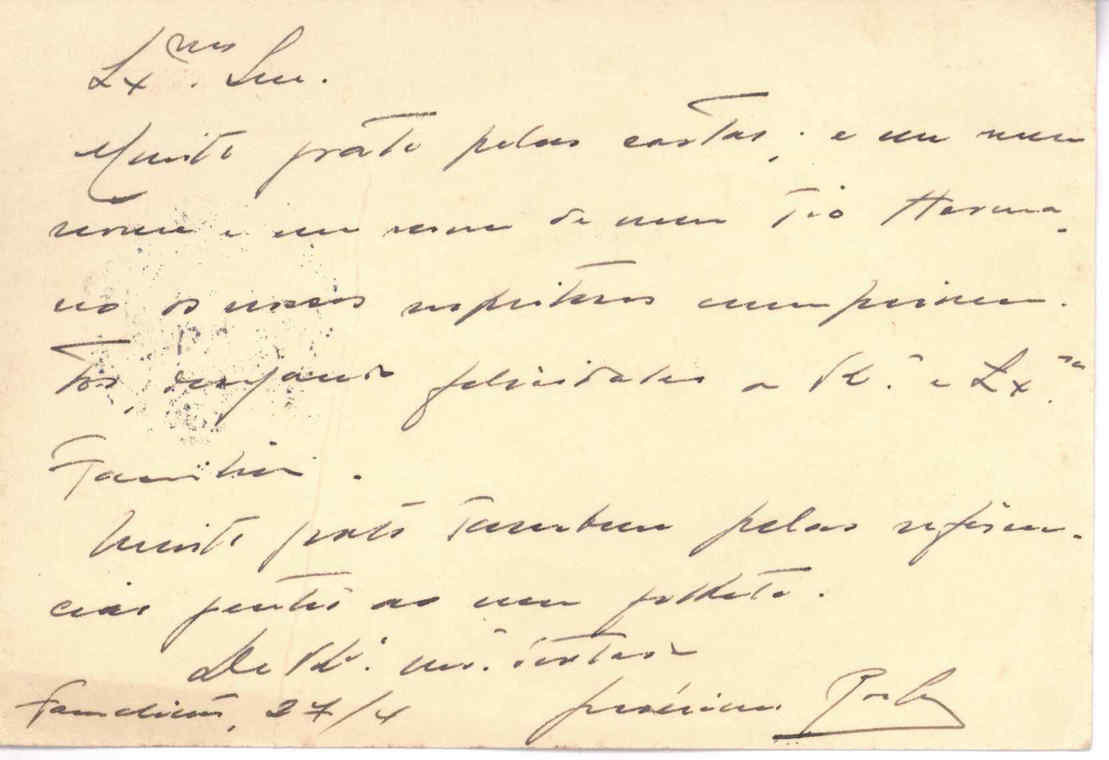 Ex.mo Snr.
Muito grato pelas cartas, e em meu
nome e em nome de meu Tio Herma-
no os nossos respeitosos cumprimen-
tos, desejando felicidades a V. e Ex.ma
Familia.
Muito grato tambem pelas referen-
cias gentis ao meu folheto.
De V.
Famalicão, 27/4